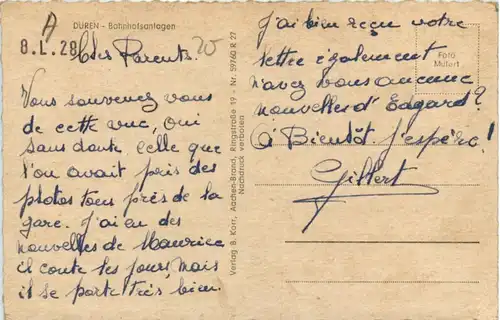 A
DÜREN - Bahnhofsanlagen
8.L.28
Chers Parents.
Vous souvenez vous
de cette vue, oui
sans doute, celle que
l'on avait pris des
photos tous près de la
gare. J'ai eu des
nouvelles de Maurice
il conte les jours, mais
il se porte très bien.
Verlag B. Korr, Aachen-Brand, Ringstraße 19 - Nr. 59760 R 27
Nachdruck verboten
J'ai bien reçu votre
lettre également
n'avez vous aucune
nouvelles d'Edgard?
à Bientôt j'espère!
Gilbert
Foto
Mutert